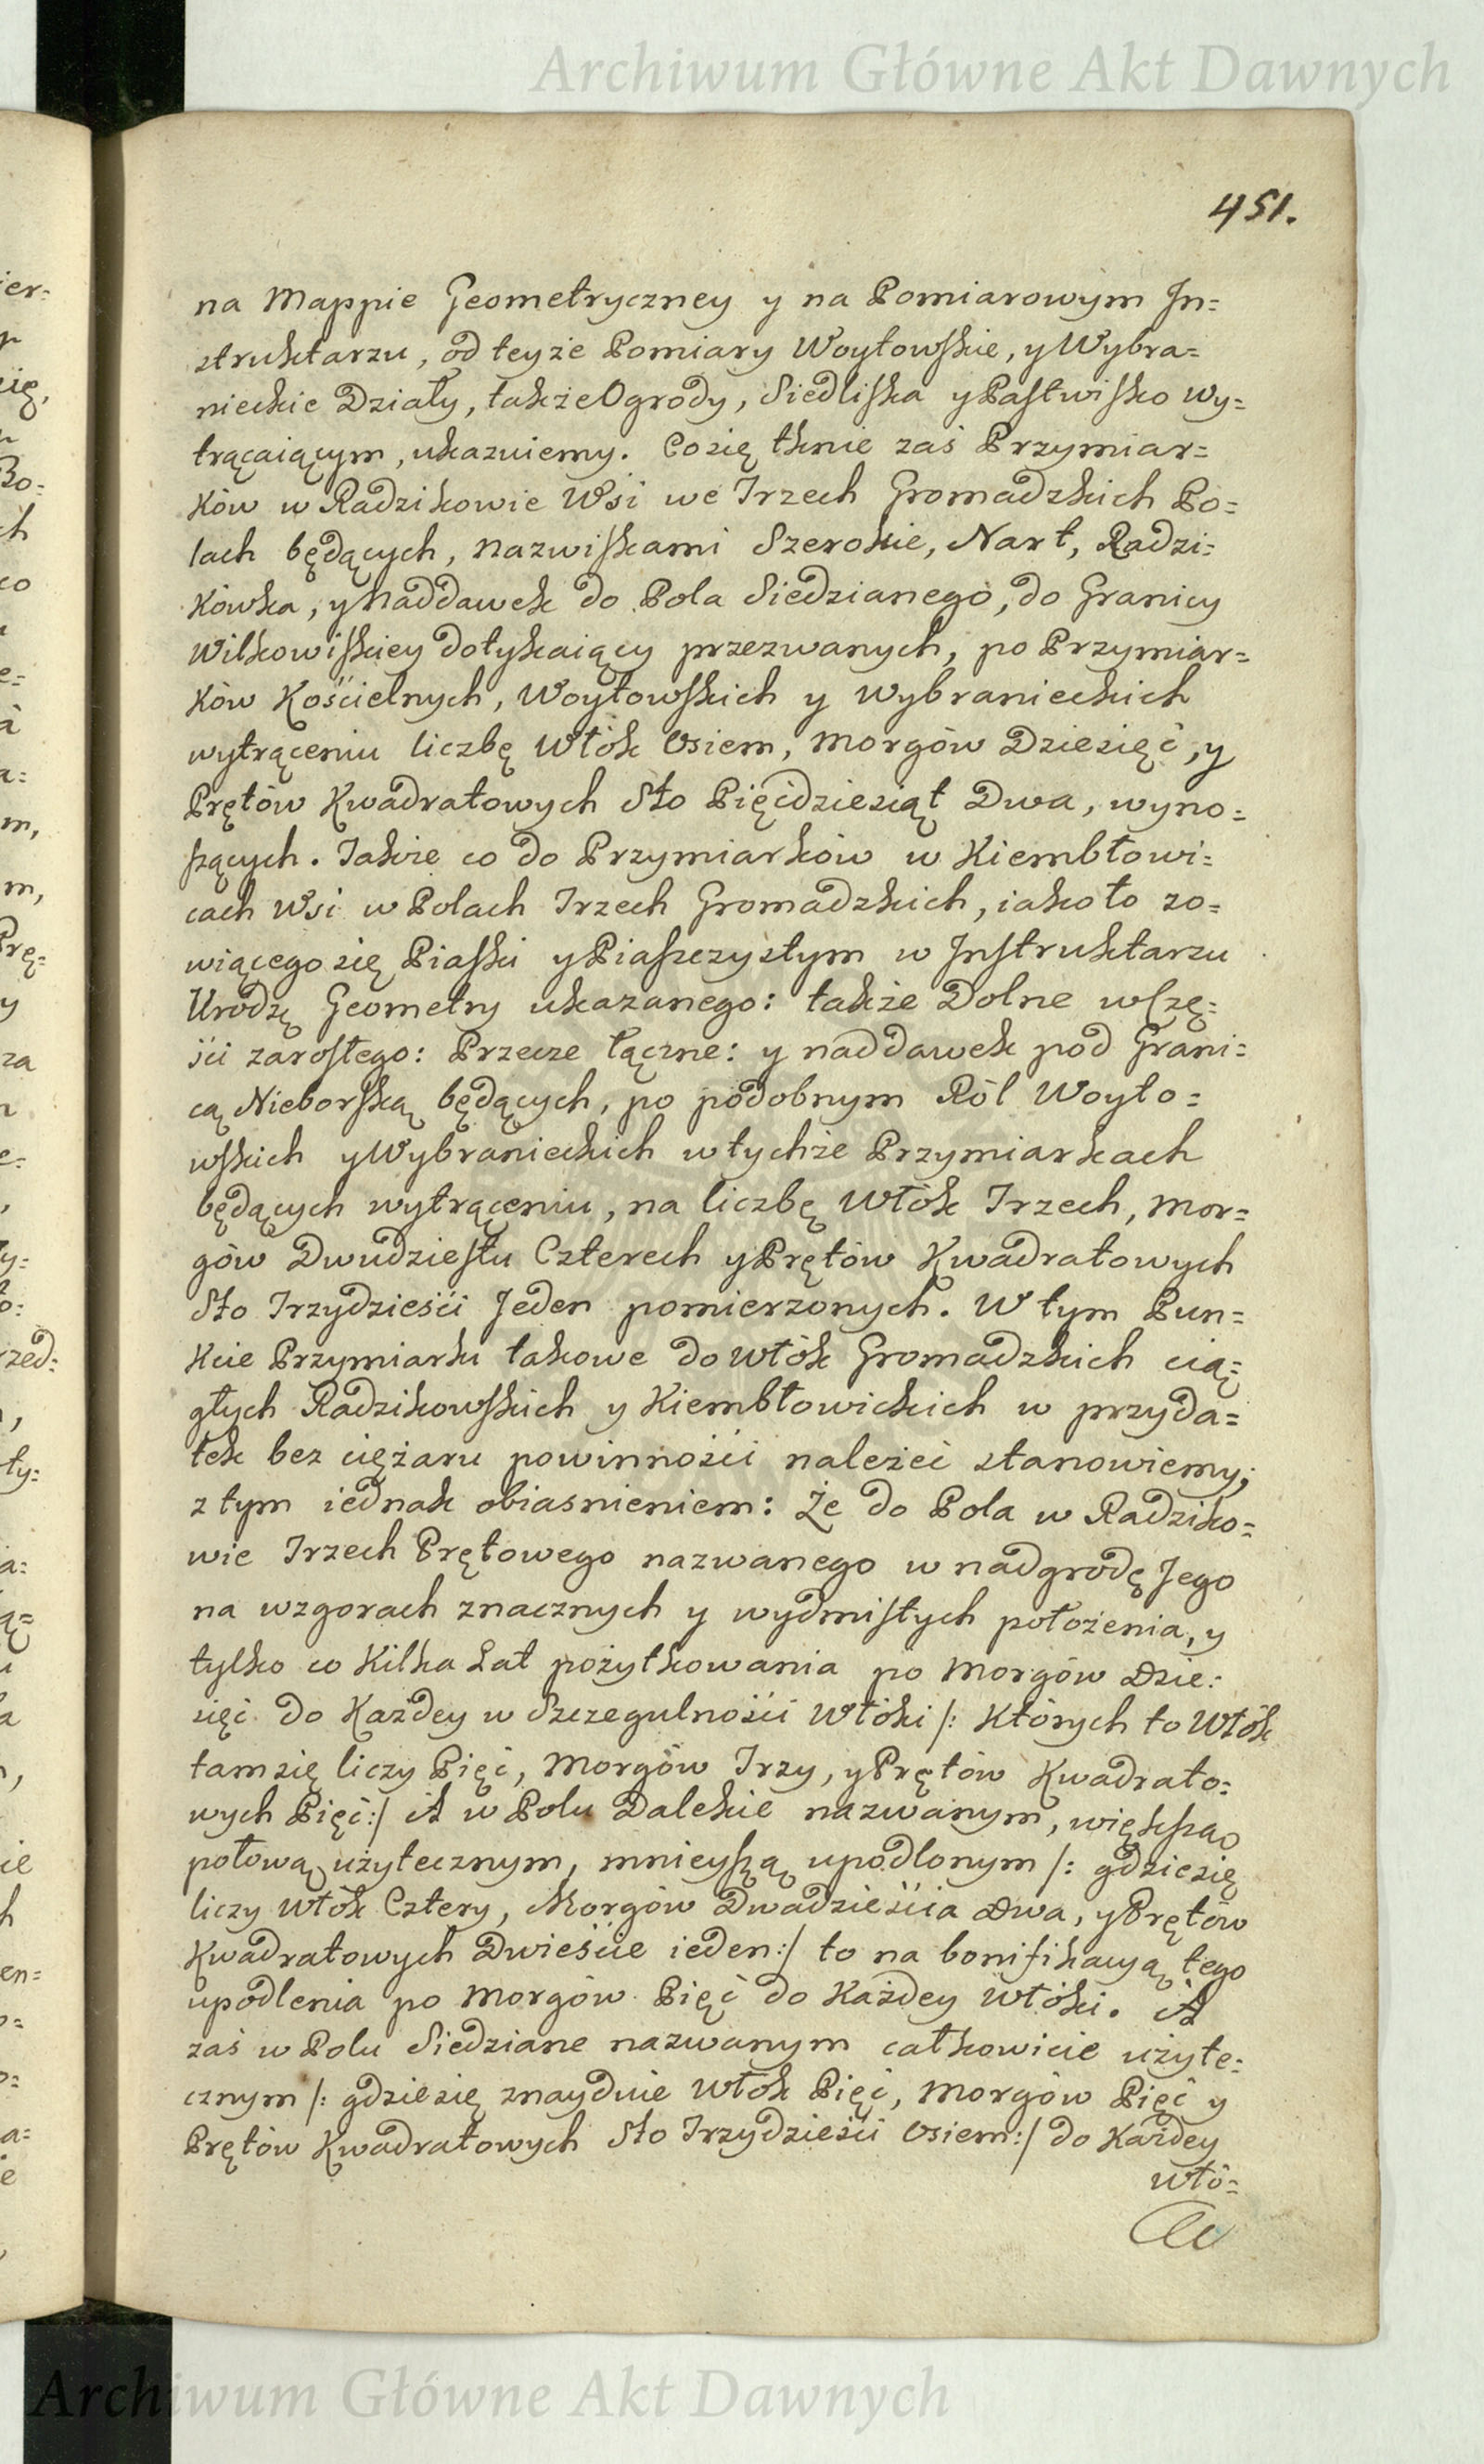 Archiwum Główne Akt Dawnych
451.
na Mappie Geometryczney y na Pomiarowym In=
struktarzu, od teyże Pomiary Woytowskie, y Wybra=
nieckie Działy, także Ogrody, Siedliska y Pastwisko wy=
trącaiącym, ukazuiemy. Co się tknie zaś Przymiar=
ków w Radzikowie Wsi we Trzech Gromadzkich Po=
lach będących, nazwiskami Szerokie, Nart, Radzi=
kówka, y Naddawek do Pola Siedzianego, do Granicy
Wilkowiskiey dotykaiący przezwanych, po Przymiar=
ków Kościelnych, Woytowskich y Wybranieckich
wytrąceniu liczbę Włók Osiem, Morgów Dziesięć, y
Prętów Kwadratowych Sto Pięćdziesiąt Dwa, wyno=
szących. Także co do Przymiarków w Kiembłowi=
cach Wsi w Polach Trzech Gromadzkich, iako to zo=
wiącego się Piaski y Piaszczystym w Instruktarzu
Urodz. Geometry ukazanego: także Dolne w Czę=
ści zarosłego: Przecze łączne: y naddawek pod Grani=
cą Nieborską będących, po podobnym Ról Woyto=
wskich y Wybranieckich w tychże Przymiarkach
będących wytrąceniu, na liczbę Włók Trzech, Mor=
gów Dwudziestu Czterech y Prętów Kwadratowych
Sto Trzydzieści Jeden pomierzonych. W tym Pun=
kcie Przymiarki takowe do Włók Gromadzkich cią=
głych Radzikowskich y Kiembłowickich w przyda=
tek bez ciężaru powinności należeć stanowiemy;
z tym iednak obiasnieniem: Że do Pola w Radziko=
wie Trzech Prętowego nazwanego w nadgrodę Jego
na wzgorach znacznych y wydmistych położenia, y
tylko co Kilka Lat pożytkowania po Morgów Dzie=
sięć do Każdey w Szczegulności Włóki /: Których to Włók
tam się liczy Pięć, Morgów Trzy, y Prętów Kwadrato=
wych Pięć :/ A w Polu Dalekie nazwanym, większą
połową użytecznym, mnieyszą upodlonym /: gdzie się
liczy Włók Cztery, Morgów Dwadzieścia Dwa, y Prętów
Kwadratowych Dwieście ieden :/ to na bonifikacyą tego
upodlenia po Morgów Pięć do Każdey Włóki. A
zaś w Polu Siedziane nazwanym całkowicie użyte=
cznym /: gdzie się znayduie Włók Pięć, Morgów Pięć y
Prętów Kwadratowych Sto Trzydzieści Osiem :/ do Każdey
Włó=
Archiwum Główne Akt Dawnych